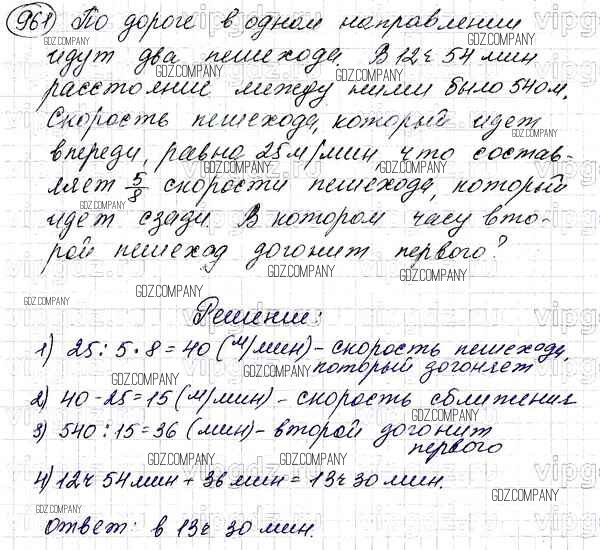 961 По дороге в одном направлении
идут два пешехода. В 12ч 54 мин
расстояние между ними было 540м.
Скорость пешехода, который идет
впереди, равна 25м/мин, что состав-
ляет 5/8 скорости пешехода, который
идет сзади. В котором часу вто-
рой пешеход догонит первого?
Решение:
1) 25 : 5 · 8 = 40 (м/мин) - скорость пешехода,
который догоняет
2) 40 - 25 = 15 (м/мин) - скорость сближения
3) 540 : 15 = 36 (мин) - второй догонит
первого
4) 12ч 54 мин + 36 мин = 13ч 30 мин.
Ответ: в 13ч 30 мин.